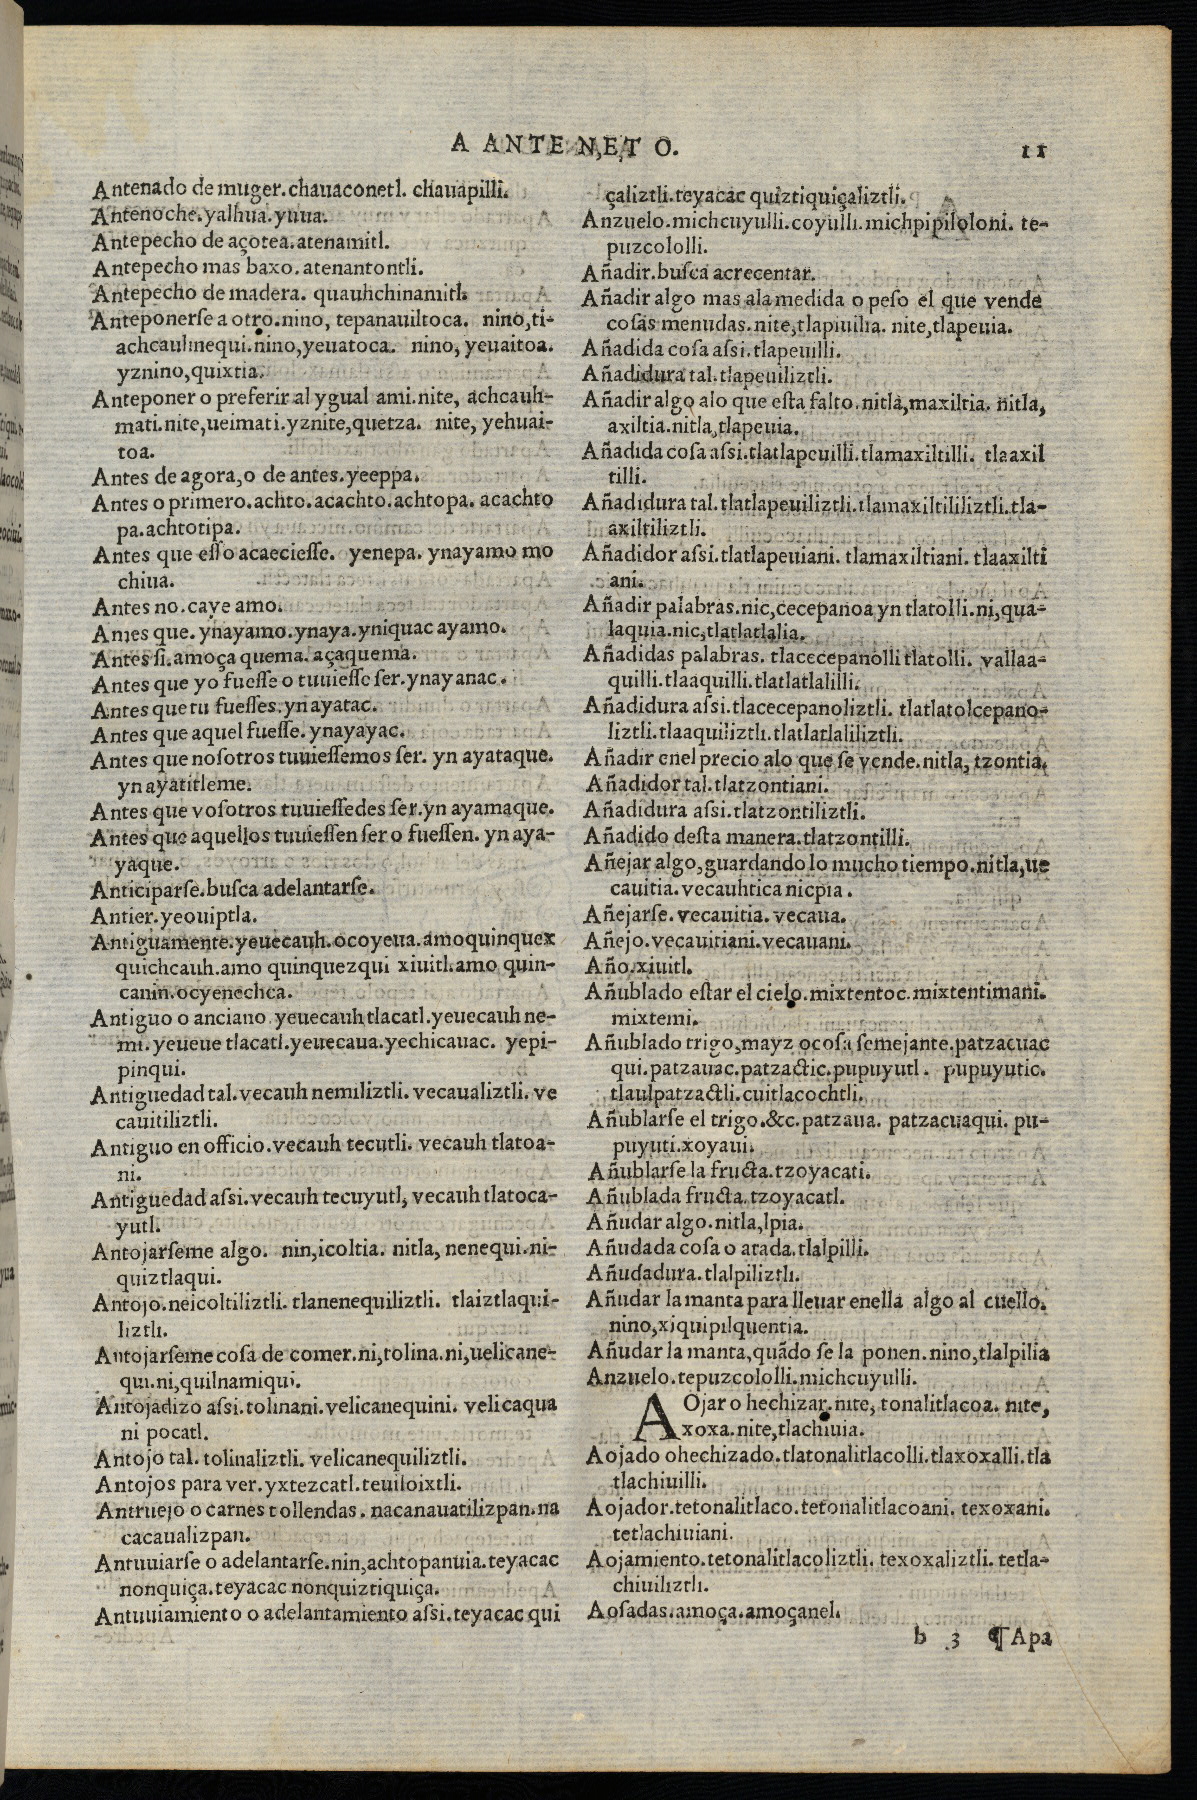 A ANTE N,E,T O.
11
Antenado de muger.chauaconetl. chauapilli.
Antenoche.yalhua.yuua.
Antepecho de açotea.atenamitl.
Antepecho mas baxo.atenantontli.
Antepecho de madera. quauhchinamitl.
Anteponerse a otro.nino, tepanauiltoca. nino,ti-
achcauhnequi.nino,yeuatoca. nino, yeuaitoa.
yznino,quixtia.
Anteponer o preferir al ygual ami.nite, achcauh-
mati.nite,ueimati.yznite,quetza. nite, yehuai-
toa.
Antes de agora,o de antes.yeeppa.
Antes o primero.achto.acachto.achtopa. acachto
pa.achtotipa.
Antes que esso acaeciesse. yenepa. ynayamo mo
chiua.
Antes no.caye amo.
Antes que.ynayamo.ynaya.yniquac ayamo.
Antes si.amoça quema.açaquema.
Antes que yo fuesse o tuuiesse ser.ynayanac.
Antes que tu fuesses.yn ayatac.
Antes que aquel fuesse.ynayayac.
Antes que nosotros tuuiessemos ser. yn ayataque.
yn ayatitleme.
Antes que vosotros tuuiessedes ser.yn ayamaque.
Antes que aquellos tuuiessen ser o fuessen. yn aya-
yaque.
Anticiparse.busca adelantarse.
Antier.yeouiptla.
Antiguamente.yeuecauh.ocoyeua.amoquinquex
quichcauh.amo quinquezqui xiuitl.amo quin-
canin.ocyenechca.
Antiguo o anciano.yeuecauh tlacatl.yeuecauh ne-
mi.yeueue tlacatl.yeuecaua.yechicauac. yepi-
pinqui.
Antiguedad tal.vecauh nemiliztli. vecaualiztli. ve
cauitiliztli.
Antiguo en officio.vecauh tecutli. vecauh tlatoa-
ni.
Antiguedad assi.vecauh tecuyutl, vecauh tlatoca-
yutl.
Antojarseme algo. nin,icoltia. nitla, nenequi.ni-
quiztlaqui.
Antojo.neicoltiliztli.tlanenequiliztli. tlaiztlaqui-
liztli.
Antojarseme cosa de comer.ni,tolina.ni,uelicane-
qui.ni,quilnamiqui.
Antojadizo assi.tolinani.velicanequini. velicaqua
ni pocatl.
Antojo tal. tolinaliztli. velicanequiliztli.
Antojos para ver.yxtezcatl.teuiloixtli.
Antruejo o carnes tollendas. nacanauatilizpan.na
cacaualizpan.
Antuuiarse o adelantarse.nin,achtopanuia.teyacac
nonquiça.teyacac nonquiztiquiça.
Antuuiamiento o adelantamiento assi.teyacac qui
çaliztli.teyacac quiztiquiçaliztli.
Anzuelo.michcuyulli.coyulli.michpipiloloni. te-
puzcololli.
Añadir.busca acrecentar.
Añadir algo mas ala medida o peso el que vende
cosas menudas.nite,tlapiuilia. nite,tlapeuia.
Añadida cosa assi.tlapeuilli.
Añadidura tal.tlapeuiliztli.
Añadir algo alo que esta falto.nitla,maxiltia. nitla,
axiltia.nitla,tlapeuia.
Añadida cosa assi.tlatlapeuilli.tlamaxiltilli. tlaaxil
tilli.
Añadidura tal.tlatlapeuiliztli.tlamaxiltililiztli.tla-
axiltiliztli.
Añadidor assi.tlatlapeuiani. tlamaxiltiani. tlaaxilti
ani.
Añadir palabras.nic,cecepanoa yn tlatolli.ni,qua-
laquia.nic,tlatlatlalia.
Añadidas palabras. tlacecepanolli tlatolli. vallaa-
quilli.tlaaquilli.tlatlatlalilli.
Añadidura assi.tlacecepanoliztli. tlatlatolcepano-
liztli.tlaaquiliztli.tlatlatlaliliztli.
Añadir enel precio alo que se vende.nitla, tzontia.
Añadidor tal.tlatzontiani.
Añadidura assi.tlatzontiliztli.
Añadido desta manera.tlatzontilli.
Añejar algo,guardando lo mucho tiempo.nitla,ue
cauitia.vecauhtica nicpia.
Añejarse.vecauitia.vecaua.
Añejo.vecauitiani.vecauani.
Año.xiuitl.
Añublado estar el cielo.mixtentoc.mixtentimani.
mixtemi.
Añublado trigo,mayz o cosa semejante.patzacuac
qui.patzauac.patzactic.pupuyutl. pupuyutic.
tlaulpatzactli.cuitlacochtli.
Añublarse el trigo.&c.patzaua. patzacuaqui. pu-
puyuti.xoyaui.
Añublarse la fructa.tzoyacati.
Añublada fructa.tzoyacatl.
Añudar algo.nitla,lpia.
Añudada cosa o atada.tlalpilli.
Añudadura.tlalpiliztli.
Añudar la manta para lleuar enella algo al cuello.
nino,xiquipilquentia.
Añudar la manta,quãdo se la ponen.nino,tlalpilia
Anzuelo.tepuzcololli.michcuyulli.
AOjar o hechizar.nite, tonalitlacoa. nite,
xoxa.nite,tlachiuia.
Aojado ohechizado.tlatonalitlacolli.tlaxoxalli.tla
tlachiuilli.
Aojador.tetonalitlaco.tetonalitlacoani. texoxani.
tetlachiuiani.
Aojamiento.tetonalitlacoliztli. texoxaliztli. tetla-
chiuiliztli.
Aosadas.amoça.amoçanel.
b 3 ¶Apa